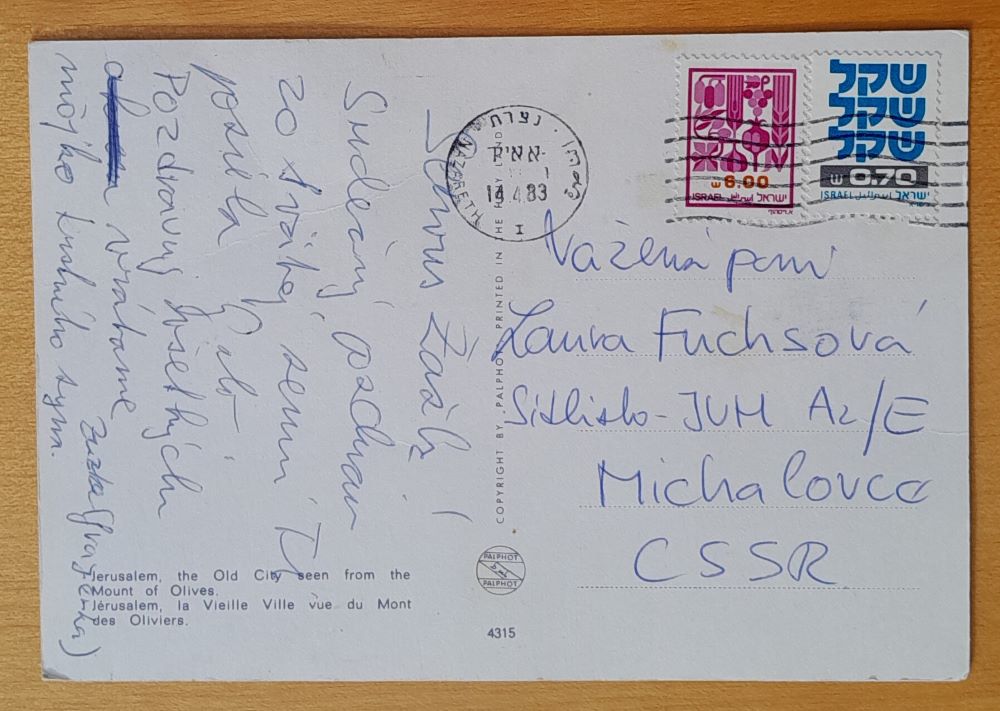 Servus Žaži!
Srdečný pozdrav
zo svätej zemi Ti
posiela
Pozdravuj všetkých
vrátane
môjho krstného syna.
Zuzka
Vážená pani
Laura Fuchsová
Sídlisko-JUH A2/E
Michalovce
CSSR
שקל
שקל
שקל
0.70
ISRAEL اسرائيل ישראל
6.00
ISRAEL اسرائيل ישראל
נצרת
NAZARETH
14.4.83
I
COPYRIGHT BY PALPHOT PRINTED IN THE HOLY LAND
PALPHOT
PALPHOT
4315
Jerusalem, the Old City seen from the
Mount of Olives.
Jérusalem, la Vieille Ville vue du Mont
des Oliviers.